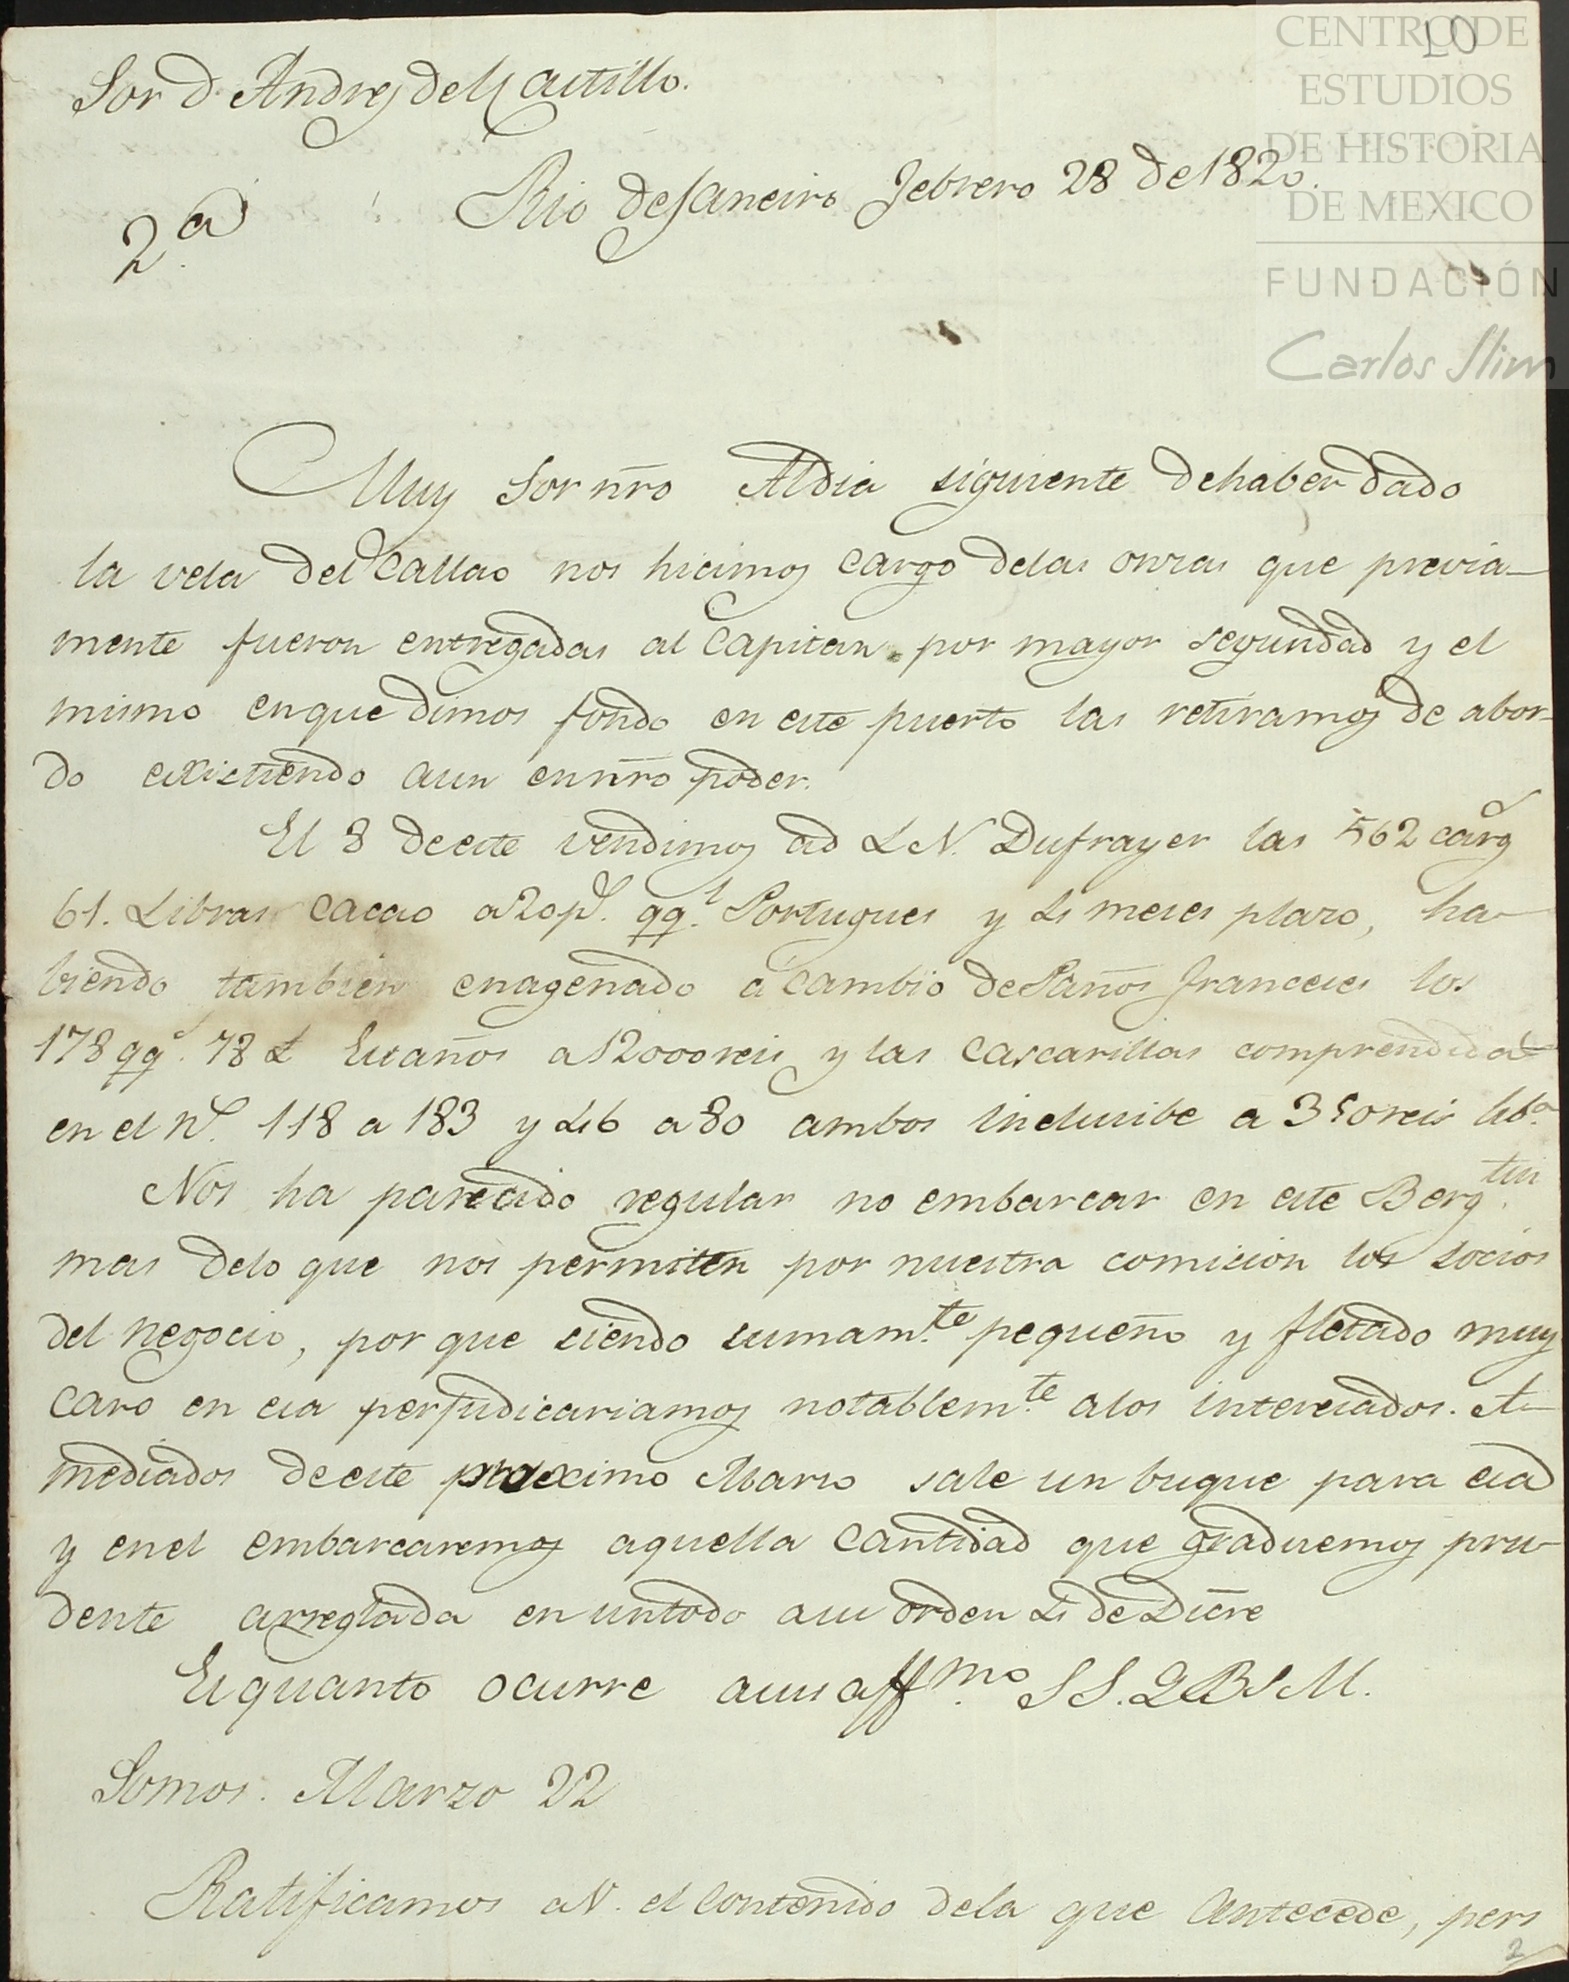 10
CENTRO DE
ESTUDIOS
DE HISTORIA
DE MEXICO
FUNDACIÓN
Carlos Slim
Sor d. Andres del Castillo.
2.a Rio de Janeiro Febrero 28 de 1820.
Muy Sor nr̃o Al dia siguiente de haber dado
la vela del Callao nos hicimos cargo delas onzas que previa-
mente fueron entregadas al Capitan por mayor seguridad y el
mismo enque dimos fondo en este puerto las retiramos de abor-
do existiendo aun en nr̃o poder.
El 8 de este vendimos ad L N. Dufrayer las 562 carg.s
61. Libras Cacao a 20 p.s qq.l Portugues y 4 meses plazo, ha-
biendo tambien enagenado á cambio de Paños Franceses los
178 qq.s 78 L Estaños a 12000 reis y las Cascarillas comprendidas
en el N.o 118 a 183 y 46 a 80 ambos inclusibe a 350 reis lib.a
Nos ha parecido regular no embarcar en este Berg.tin
mas delo que nos permiten por nuestra comision los socios
del negocio, por que siendo sumam.te pequeño y fletado muy
caro en esa perjudicariamos notablem.te alos interesados. A
mediados de este proximo Marzo sale un buque para esa
y en el embarcaremos aquella cantidad que graduemos pru-
dente arreglada en untodo asu orden 4 de Dic̃re
Es quanto ocurre asus aff.mo S S. Q B S M.
Somos. Marzo 22
Ratificamos a V. el contenido dela que antecede, pero
2